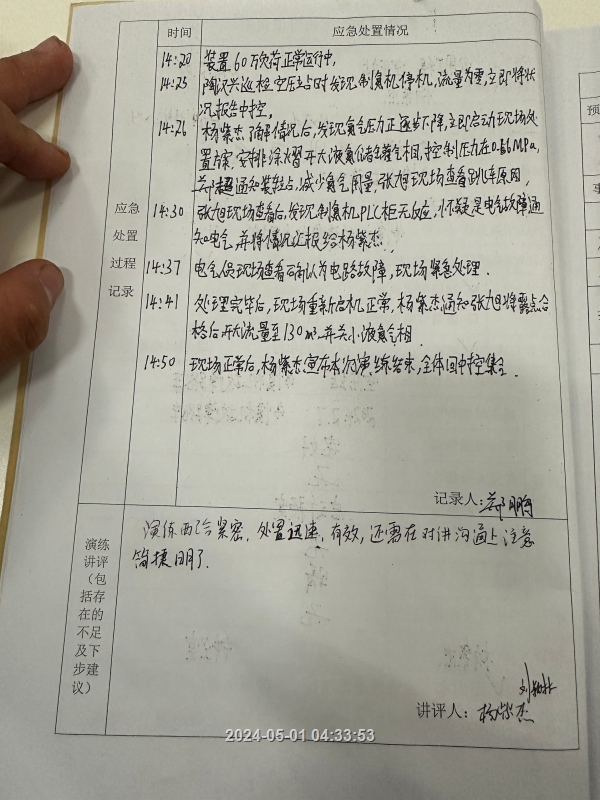 时间 应急处置情况
14:20 装置60万负荷正常运行中,
14:25 陶汉兴巡检空压站时发现制氮机停机,流量为零,立即将状
况报告中控,
14:26 杨紫杰了解情况后,发现氮气压力正逐步下降,立即启动现场处
置方案,安排涂水翯开大液氮储备氮气相,控制压力在0.66MPa,
超通知装维点,减少氮气用量,张旭现场查看跳车原因,
14:30 张旭现场查看后,发现制氮机PLC柜无反应,怀疑是电气故障通
知电气,并将情况汇报给杨紫杰.
14:37 电气人员现场查看确认为电路故障,现场紧急处理.
14:41 处理完毕后,现场重新启机正常,杨紫杰通知张旭将露点合
格后开大流量至130m³.并关小液氮气相
14:50 现场正常后,杨紫杰宣布本次演练结束,全体回中控集合
应急
处置
过程
记录
记录人:鹏
演练
讲评
(包
括存
在的
不足
及下
步建
议)
演练配合紧密,处置迅速,有效,还需在对讲沟通上注意
简捷明了.
讲评人:杨紫杰
2024-05-01 04:33:53
预
事